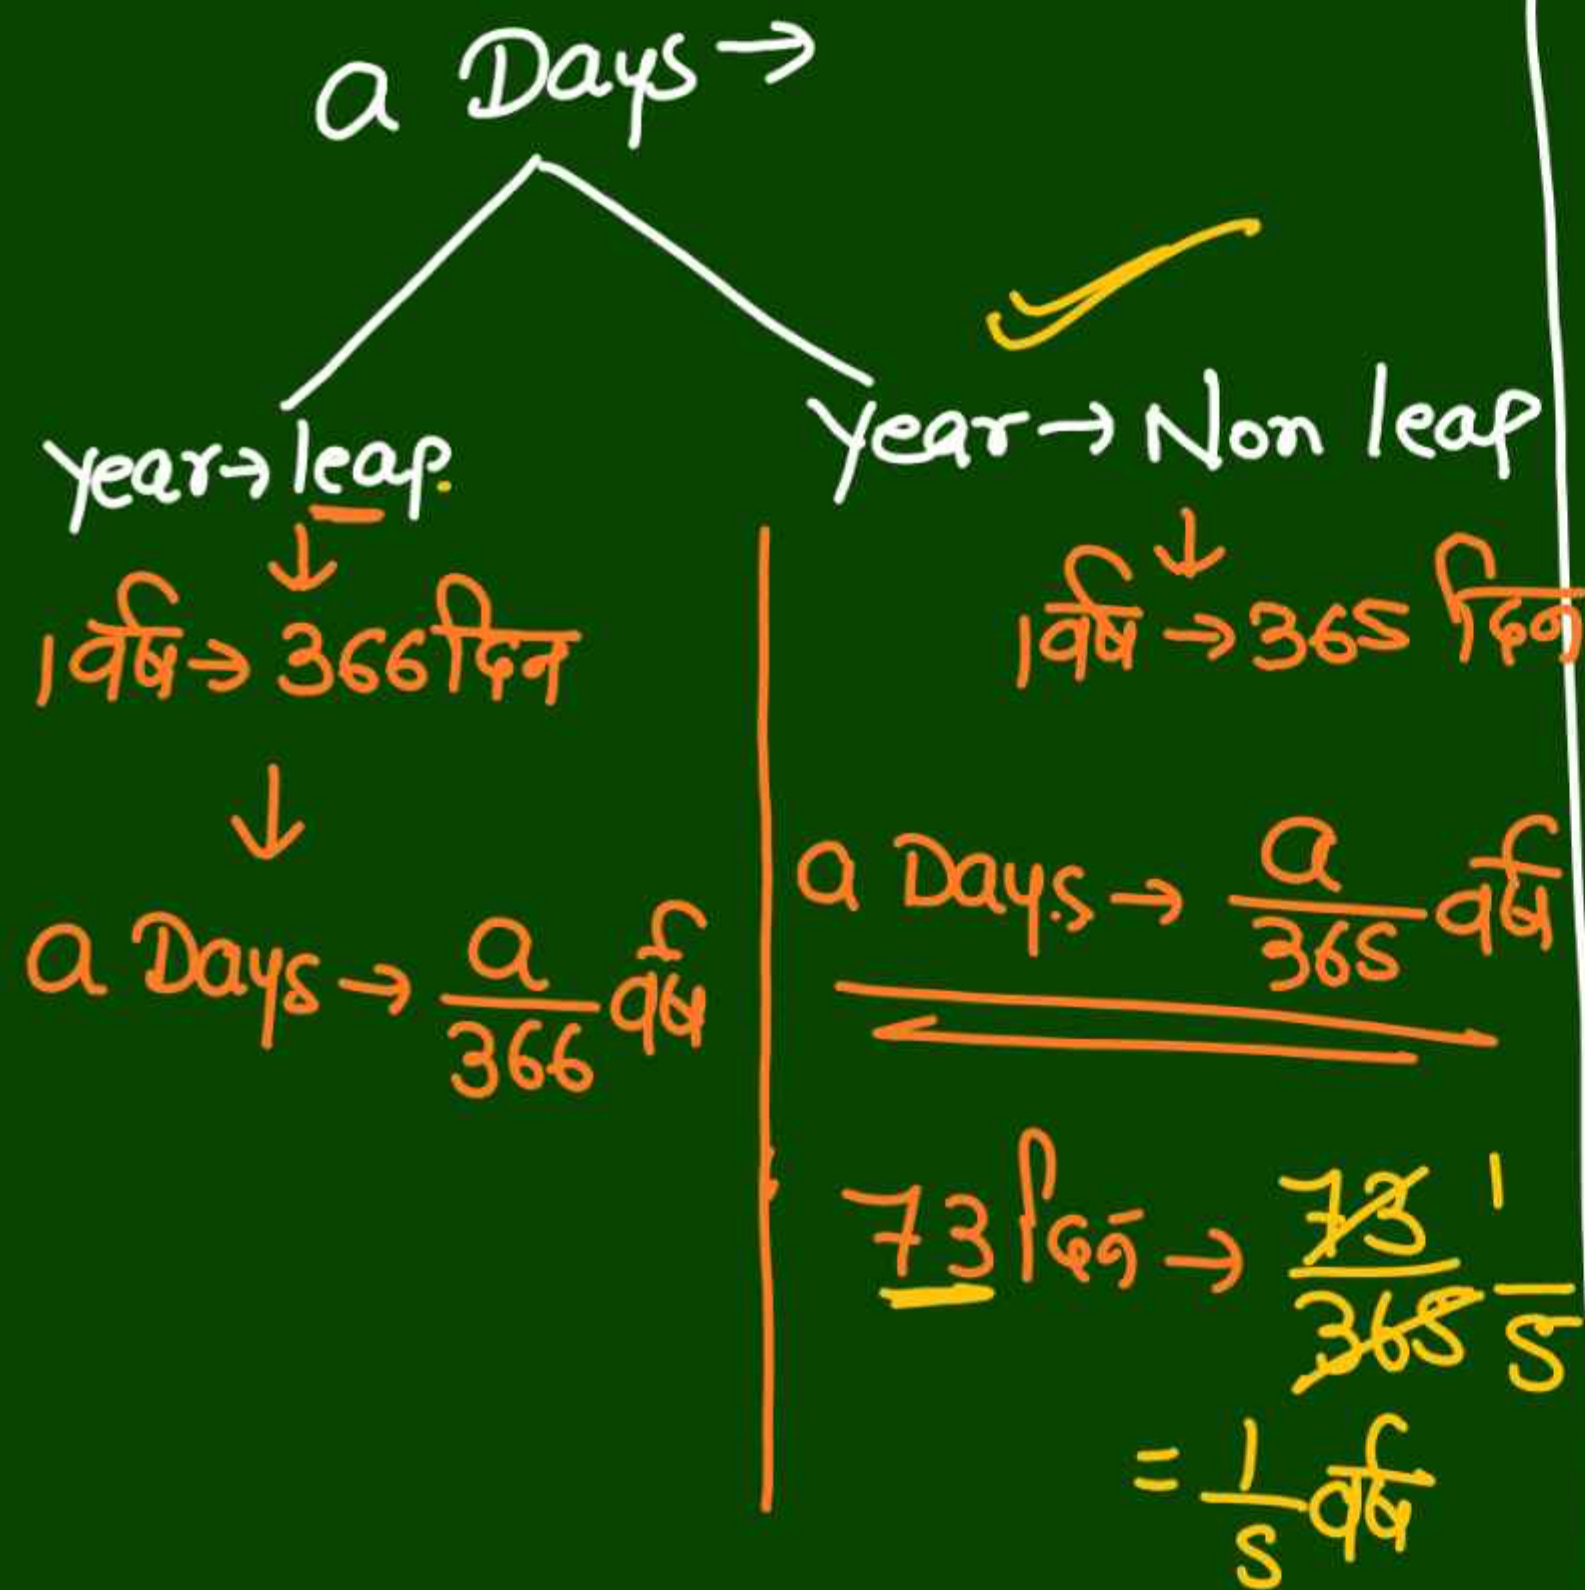 a Days →
year → leap.
1वर्ष → 366 दिन
a Days → a/366 वर्ष
year → Non leap
1वर्ष → 365 दिन
a Days → a/365 वर्ष
73 दिन → 73/365 1/5
= 1/5 वर्ष